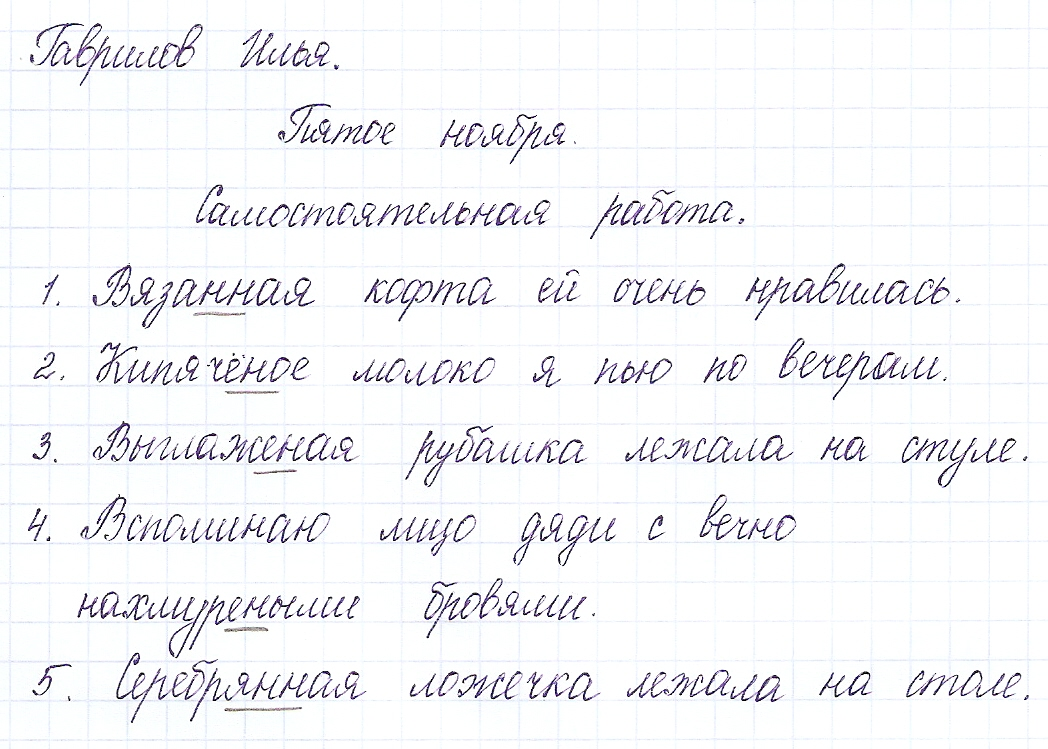 Гаврилов Илья.
Пятое ноября.
Самостоятельная работа.
1. Вязанная кофта ей очень нравилась.
2. Кипячёное молоко я пью по вечерам.
3. Выглаженая рубашка лежала на стуле.
4. Вспоминаю лицо дяди с вечно
нахмуреными бровями.
5. Серебрянная ложечка лежала на столе.